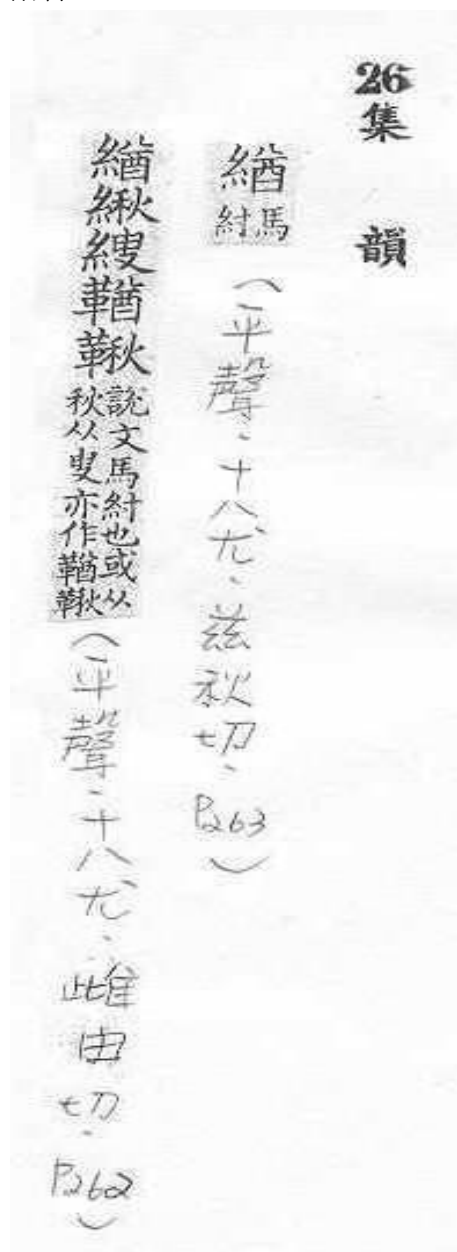 26集 韻
緧 馬紂 (平聲、十八尤、茲秋切、P263)
緧䋺𦃈鞧鞦 說文馬紂也或从秋从叟亦作鞧鞦 (平聲、十八尤、雌由切、P262)